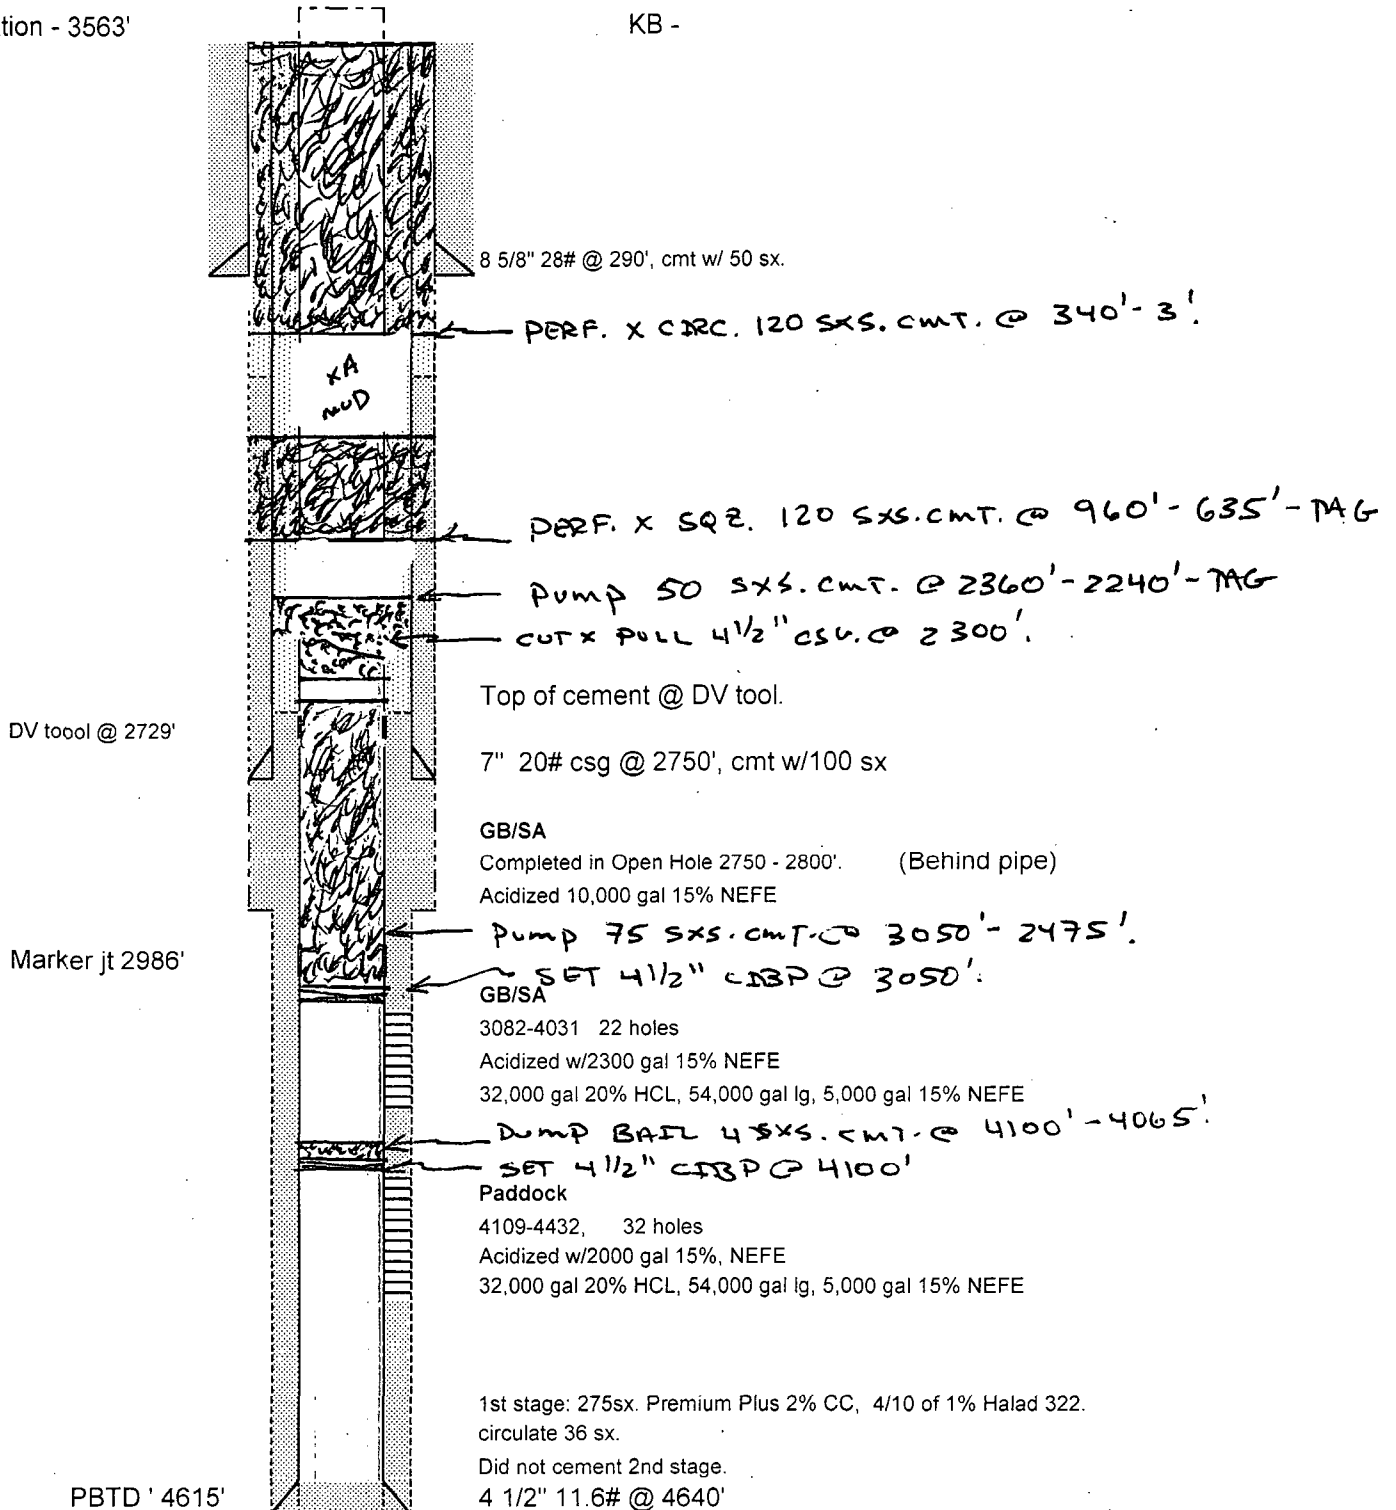 tion - 3563'
KB -
8 5/8" 28# @ 290', cmt w/ 50 sx.
PERF. X CIRC. 120 SXS. CMT. @ 340'- 3'.
MUD
PERF. X SQZ. 120 SXS. CMT. @ 960'- 635'- TAG
Pump 50 SXS. CMT. @ 2360'- 2240'- TAG
CUT X PULL 4 1/2" CSG. @ 2300'.
Top of cement @ DV tool.
DV toool @ 2729'
7" 20# csg @ 2750', cmt w/100 sx
GB/SA
Completed in Open Hole 2750 - 2800'. (Behind pipe)
Acidized 10,000 gal 15% NEFE
Pump 75 SXS. CMT. @ 3050'- 2475'.
Marker jt 2986'
SET 4 1/2" CIBP @ 3050'.
GB/SA
3082-4031 22 holes
Acidized w/2300 gal 15% NEFE
32,000 gal 20% HCL, 54,000 gal lg, 5,000 gal 15% NEFE
Dump BAIL 4 SXS. CMT. @ 4100'- 4065'.
SET 4 1/2" CIBP @ 4100'
Paddock
4109-4432, 32 holes
Acidized w/2000 gal 15%, NEFE
32,000 gal 20% HCL, 54,000 gal lg, 5,000 gal 15% NEFE
1st stage: 275sx. Premium Plus 2% CC, 4/10 of 1% Halad 322.
circulate 36 sx.
Did not cement 2nd stage.
PBTD ' 4615'
4 1/2" 11.6# @ 4640'